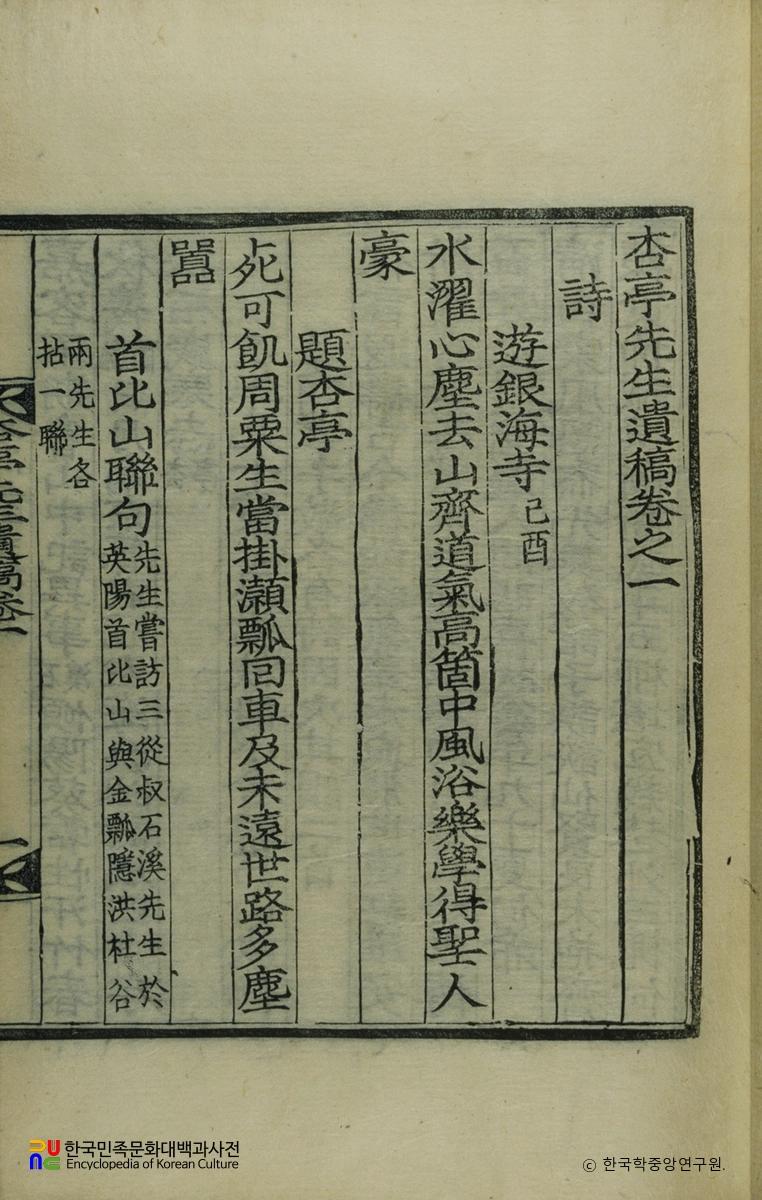 杏亭先生遺稿卷之一
詩
遊銀海寺己酉
水濯心塵去山齊道氣高箇中風浴樂學得聖人
豪
題杏亭
死可飢周粟生當掛瀨瓢回車及未遠世路多塵
囂
首比山聯句先生嘗訪三從叔石溪先生於
英陽首比山與金瓢隱洪杜谷
兩先生各
拈一聯
杏亭先生遺稿卷一
한국민족문화대백과사전
Encyclopedia of Korean Culture
ⓒ 한국학중앙연구원.